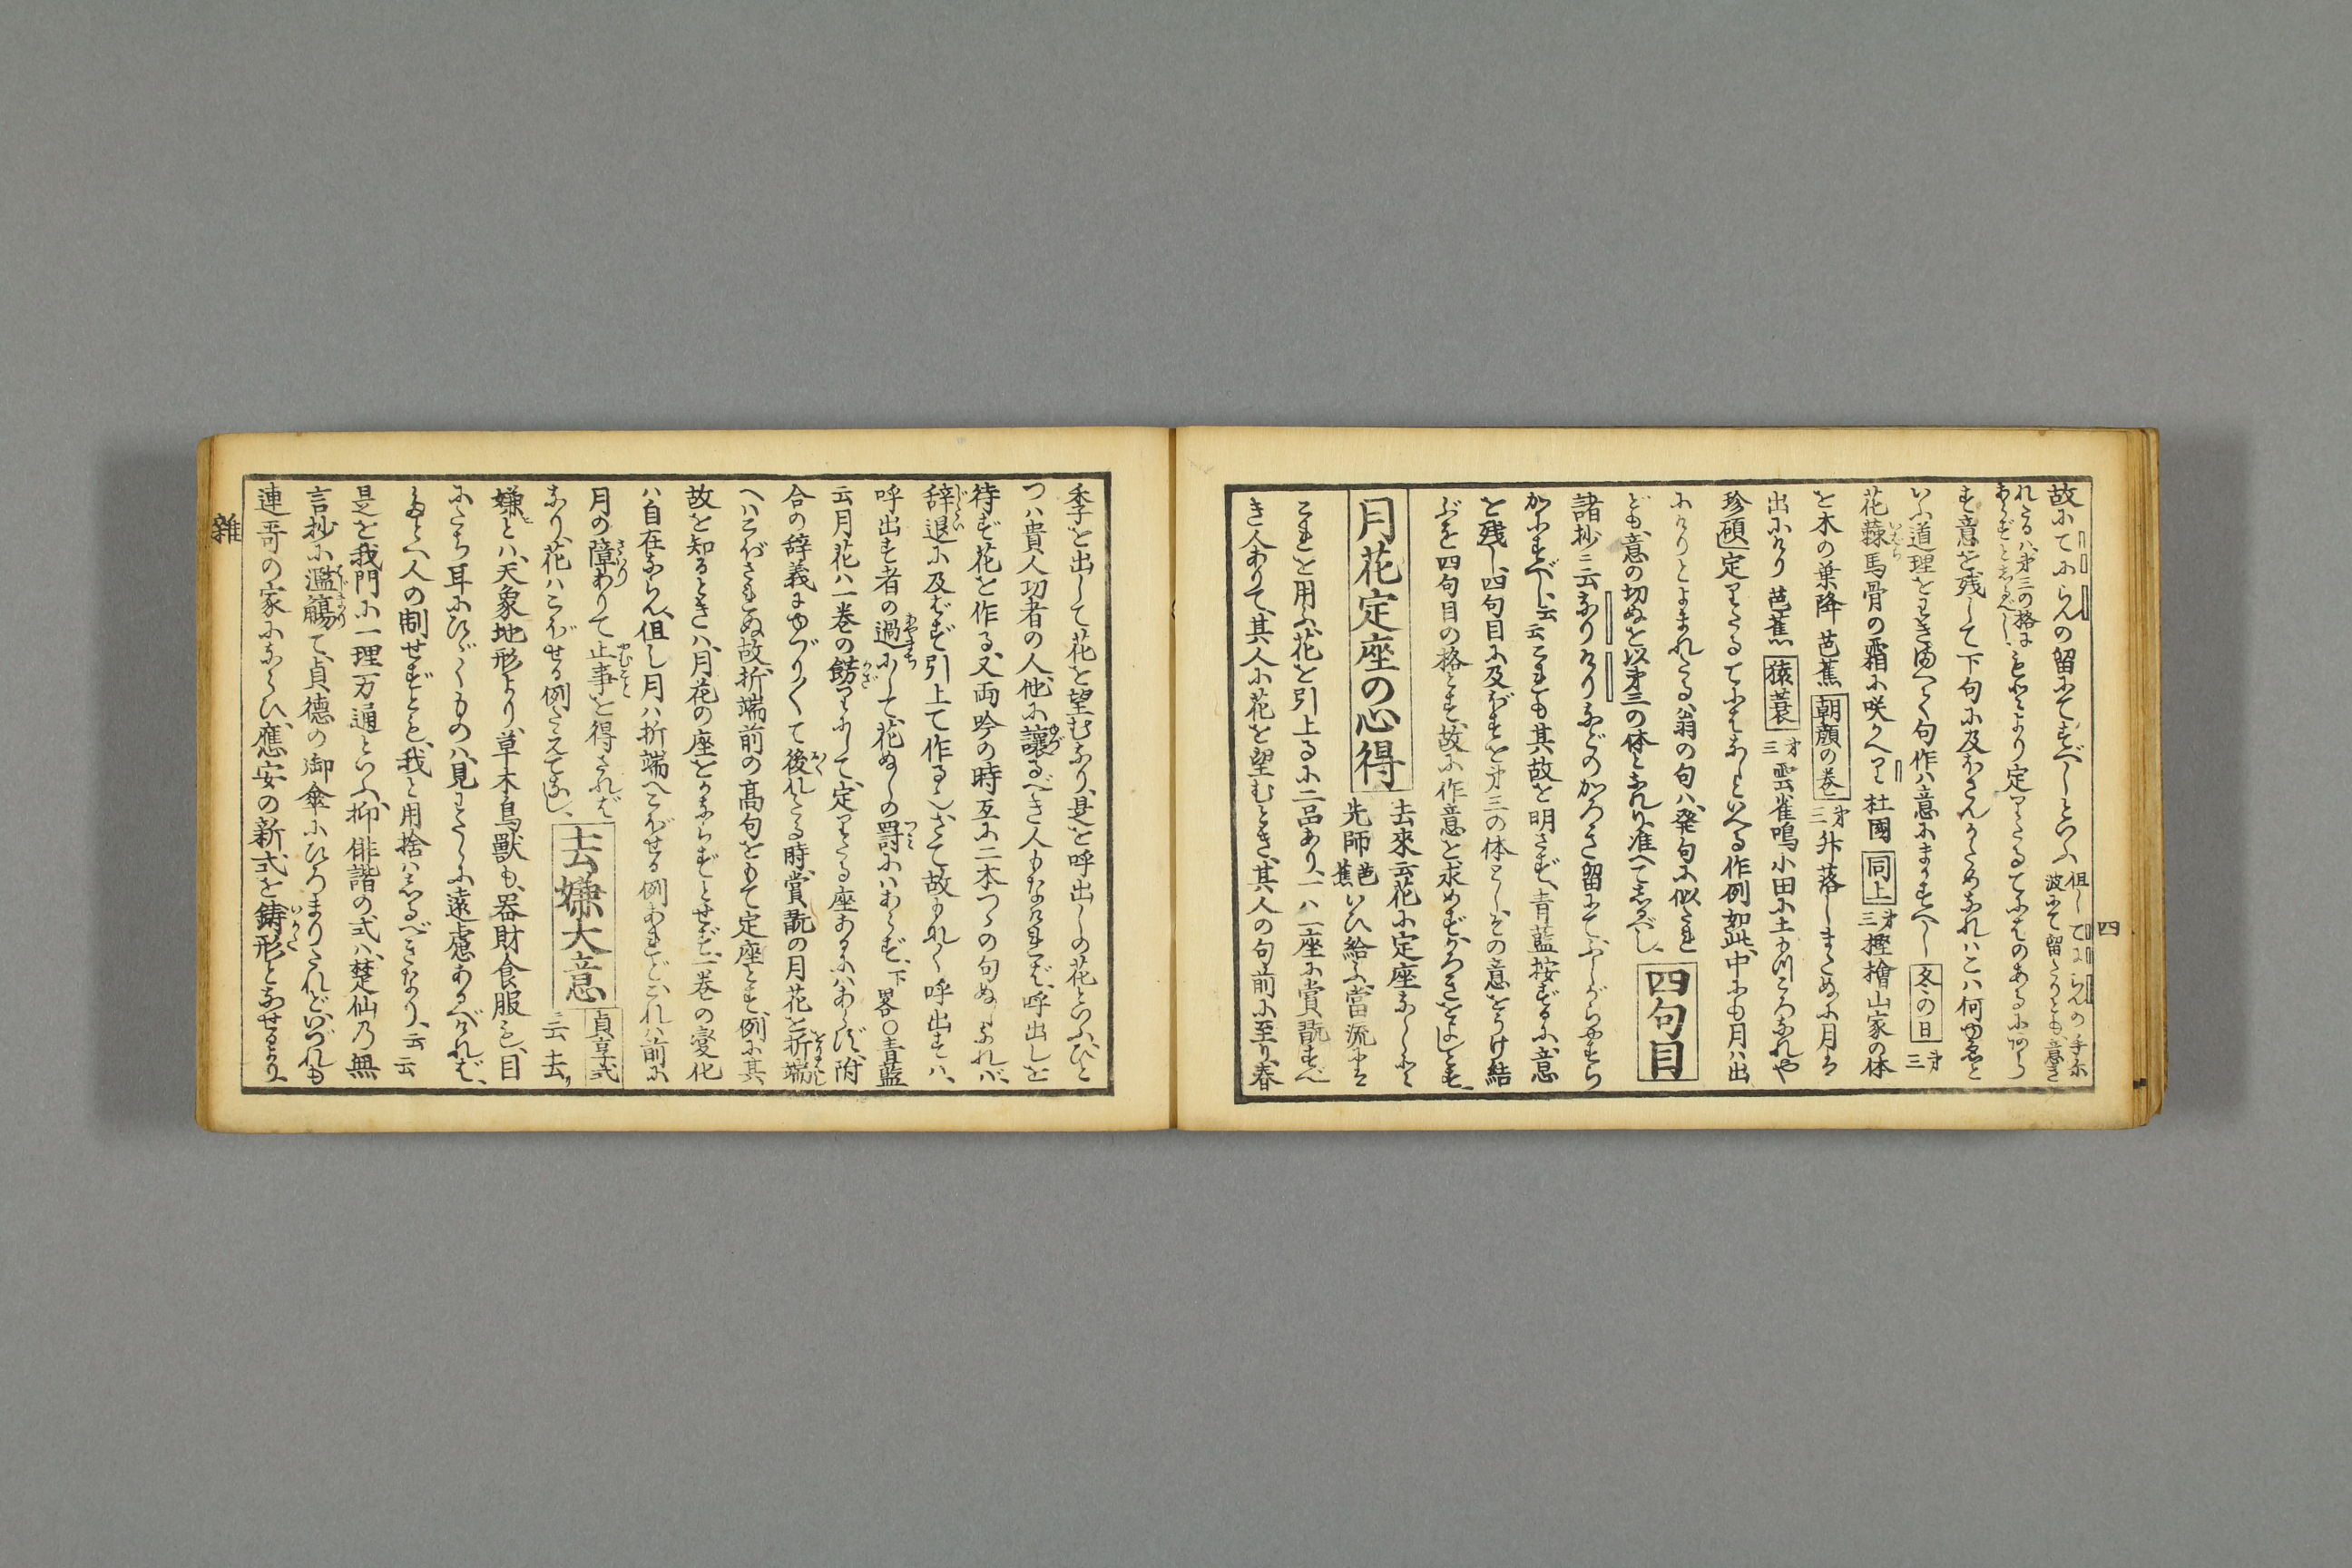 四
故にてにらんの留にてすべしといふ但してにらんの手尓
波にて留たりとも意き
れたるハ第三の格に
あらずとしるべし
もとより定りたるてにをはのあるに何ら
す意を残して下句に及ぼさんがためなれハこハ何ゆゑと
いふ道理をときゆべく句作ハ意にまかすべし冬の日第三
花蕀馬骨の霜に咲かへり杜國同上第三樫檜山家の体
を木の葉降芭蕉朝顔の巻第三舛落しまたぬに月ハ
出にけり芭蕉猿蓑第三雲雀鳴小田に土もつころなれや
珍碩定りたるてにをはなしといへる作例如此中にも月ハ出
にけりとよまれたるハ翁の句ハ発句に似たれ
ども意の切ぬを以第三の体としれり准へてしるべし四句目
諸抄ニ云なりけりなどのかろき留にてぶしがらやすら
かにすべし云云これも其故を明さず青藍按ずるに意
を残し四句目に及ぼすを第三の体としその意をうけ結
ぶを四句目の格とす故に作意を求めずかろきをよしとす
月花定座の心得去來云花に定座なしと
先師芭蕉いひ給ふ當流にハ
これを用ふ花を引上るに二品あり一ハ一座に賞翫すべ
き人ありて其人に花を望むとき其人の句前に至り春
季を出して花を望むなり是を呼出しの花といふひと
つハ貴人功者の人他に讓るべき人もなければ呼出しを
待ず花を作る又両吟の時互に二本づゝの句ぬしなれバ
辞退に及ばず引上て作るしさて故もなく呼出すハ
呼出す者の過にして花ぬしの罸にハあらず下畧○青藍
云月花ハ一巻の錺りにして定りたる座あるにハあらず附
合の辞義にゆづりゝて後れたる時賞翫の月花を折端
へハこぼさゞるゆゑ故折端前の高句をもて定座とす例に其
故を知るときハ月花の座をかならずとせず一巻の変化
ハ自在ならん但し月ハ折端へこぼせる例あれどこれハ前に
月の障ありて止事を得ざれば
なり花ハこぼせる例たえてなし去嫌大意貞享式ニ云去
嫌とハ天象地形より草木鳥獣も器財食服も目
にたち耳にひゞくものハ見わたしに遠慮あるべければ
たとへ人の制せずとも我と用捨ハあるべきなり云云
是を我門に一理万通といふ抑俳諧の式ハ楚仙乃無
言抄に濫觴て貞徳の御傘にひろまりたれどいづれも
連哥の家にならひ應安の新式を鋳形となせるなり
雑